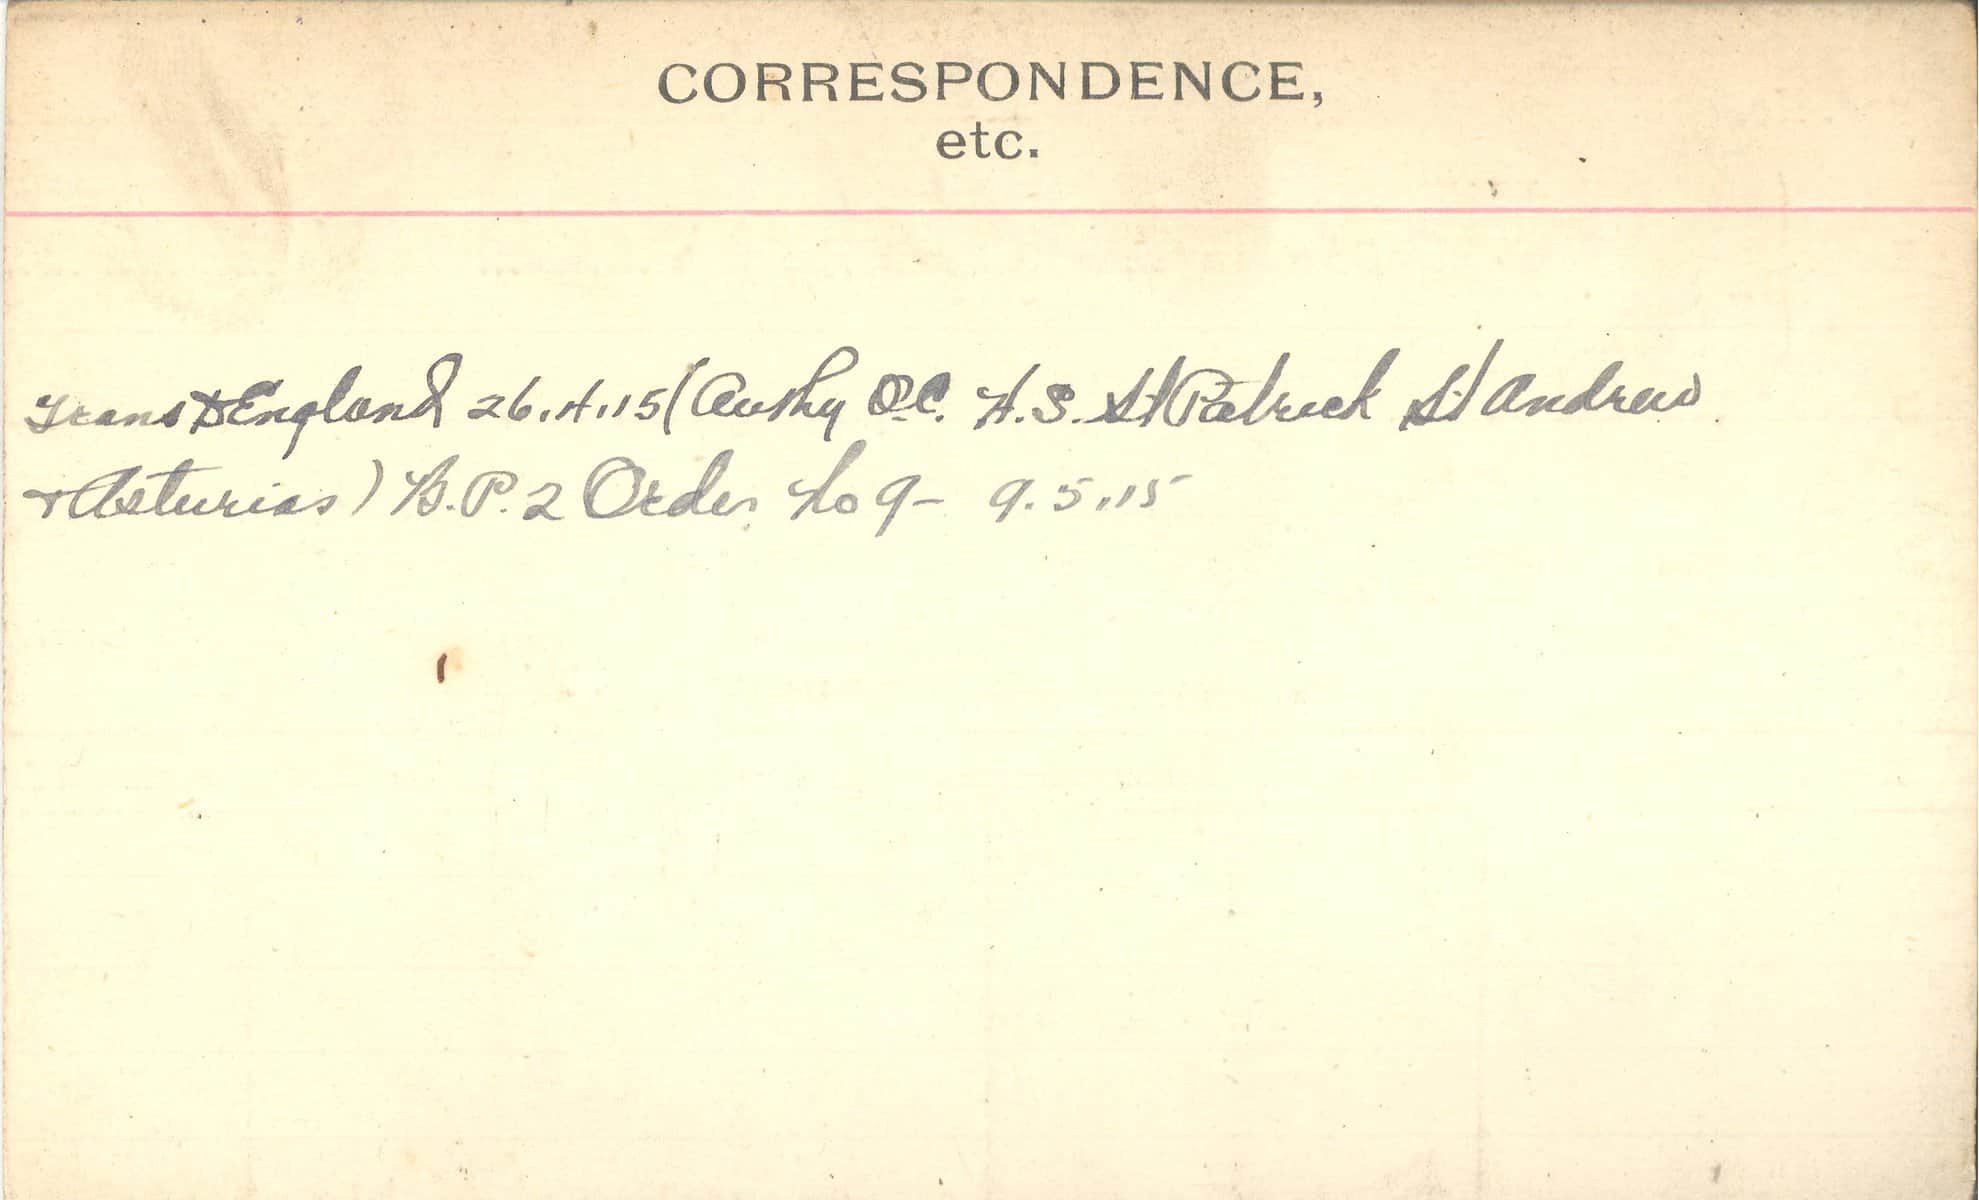 CORRESPONDENCE,
etc.
Trans to England 26.4.15 (Authy O.C. H.S. St Patrick St Andrew
& Asturias) B.P. 2 Order No 9 - 9.5.15